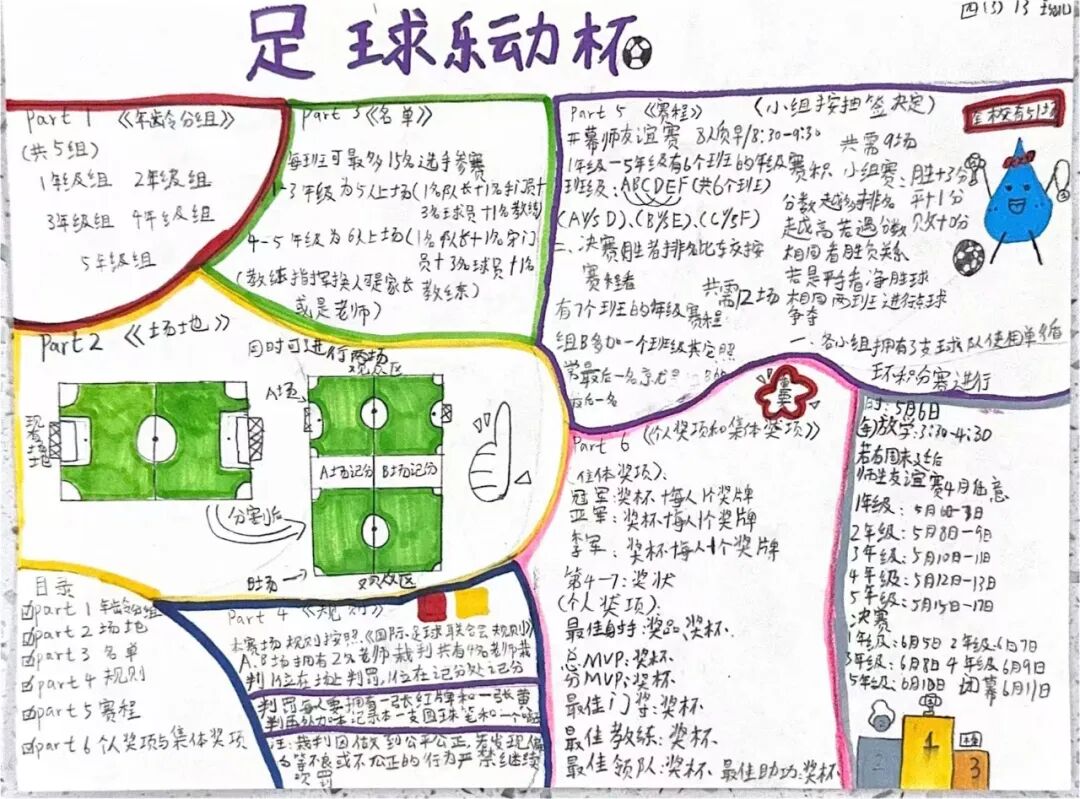 四(3) 13
足球乐动杯
Part 1 《年龄分组》
(共5组)
1年级组 2年级组
3年级组 4年级组
5年级组
Part 3《名单》
每班可最多15名选手参赛
1-3年级为5人上场(1名队长+1名
3名球员+1名教练
4-5年级为6人上场(1名队长+1名守门
员+3名球员+1名
教练)
(教练指挥换人可是家长
或是老师)
Part 5 《赛程》 (小组按抽签决定)
开幕师友谊赛 8:30-9:30
1年级-5年级有6个班的年级赛积
班级:ABCDEF(共6个班)
(A VS D)、(B VS E)、(C VS F)
二、决赛
赛程者
共需12场
有7个班的年级赛程
组B多加一个班级其它照
共需9场
小组赛:胜+3分
平+1分
负+0分
分数越多排名
越高若遇分数
相同者胜负关系
若是平者:净胜球
相同两班进行点球
争夺
一、各小组拥有3支球队使用单循
环积分赛进行
Part 2 《场地》
同时可进行两场
观众区
A场
现有场地
A场记分 B场记分
分割后
B场
观众区
Part 6 《个人奖项和集体奖项》
冠军:奖杯+每人1个奖牌
亚军:奖杯+每人1个奖牌
季军:奖杯+每人1个奖牌
第4-7:奖状
(个人奖项):
最佳 奖品、奖杯
总MVP:奖杯
分MVP:奖杯
最佳门将:奖杯
最佳教练:奖杯
最佳领队:奖杯 最佳助功:奖杯
5月6日
放学3:30-4:30
若有周末
师生友谊赛4月任意
1年级:5月6日-7日
2年级:5月8日-9日
3年级:5月10日-11日
4年级:5月12日-13日
5年级:5月15日-17日
决赛
1年级:6月5日 2年级:6月7日
3年级:6月8日 4年级:6月9日
5年级:6月10日 闭幕6月11日
1
2
3
目录
part 1 年龄分组
part 2 场地
part 3 名单
part 4 规则
part 5 赛程
part 6 个人奖项与集体奖项
Part 4 《规则》
本赛场规则按照《国际足球联合会规则》
A、B场拥有2名老师裁判共有4名老师裁
判1位在场上判罚,1位在记分处记分
判罚每人要拥有一张红牌和一张黄
注:裁判因做到公平公正,若发现偏
等不良或不公正的行为严禁继续